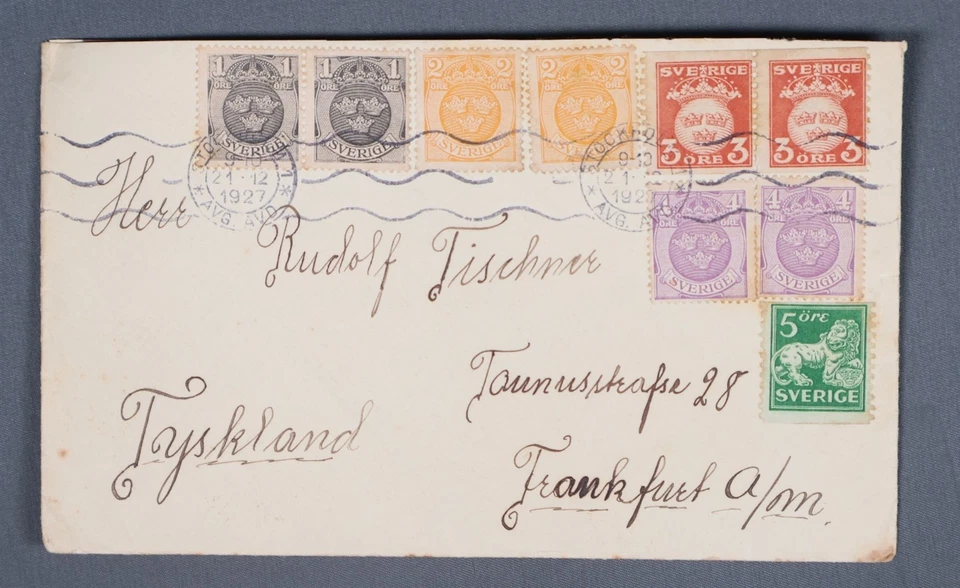 1 1
ÖRE ÖRE
SVERIGE
1 1
ÖRE ÖRE
SVERIGE
2 2
ÖRE ÖRE
SVERIGE
2 2
ÖRE ÖRE
SVERIGE
SVERIGE
3 ÖRE 3
SVERIGE
3 ÖRE 3
9-10
21-12
1927
AVG. AVD.
9-10
21
AVG.
4 4
SVERIGE
4 4
SVERIGE
5 öre
SVERIGE
Herr
Rudolf Tischner
Taunusstraße 28
Tyskland
Frankfurt a/m.